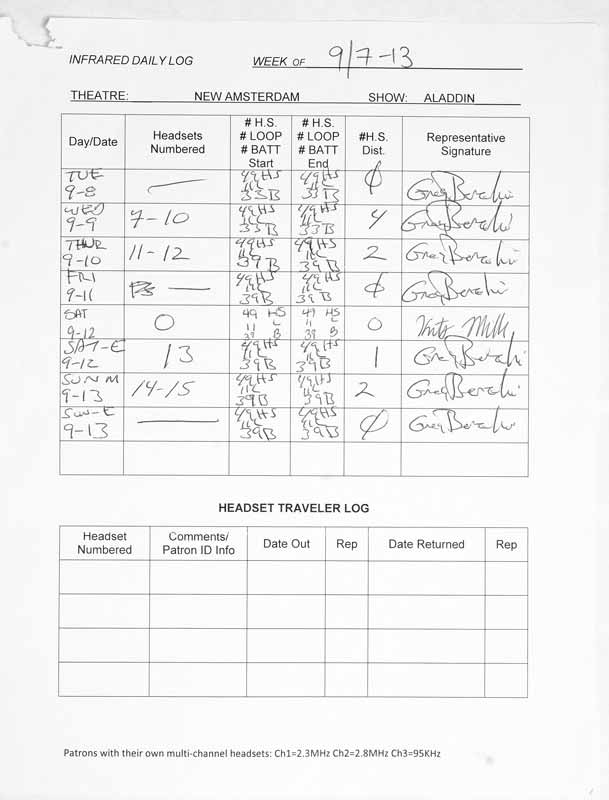 INFRARED DAILY LOG WEEK OF 9/7-13
THEATRE: NEW AMSTERDAM SHOW: ALADDIN
Day/Date
Headsets
Numbered
# H.S.
# LOOP
# BATT
Start
# H.S.
# LOOP
# BATT
End
#H.S.
Dist.
Representative
Signature
TUE
9-8
—
49HS
11L
33B
49HS
11L
33B
0
WED
9-9
7-10
49HS
11L
33B
49HS
11L
33B
4
THUR
9-10
11-12
49HS
11L
39B
49HS
11L
39B
2
FRI
9-11
—
49HS
11L
39B
49HS
11L
39B
0
SAT
9-12
0
49 HS
11 L
39 B
49 HS
11 L
39 B
0
SAT-E
9-12
13
49HS
11L
39B
49HS
11L
39B
1
SUN M
9-13
14-15
49HS
11L
39B
49HS
11L
39B
2
SUN-E
9-13
—
49HS
11L
39B
49HS
11L
39B
0
HEADSET TRAVELER LOG
Headset
Numbered
Comments/
Patron ID Info
Date Out
Rep
Date Returned
Rep
Patrons with their own multi-channel headsets: Ch1=2.3MHz Ch2=2.8MHz Ch3=95KHz